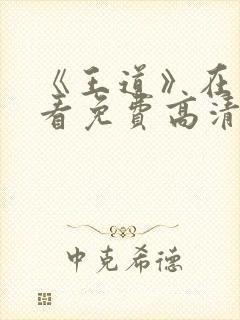 《王道》在
看免费高清
中克希德